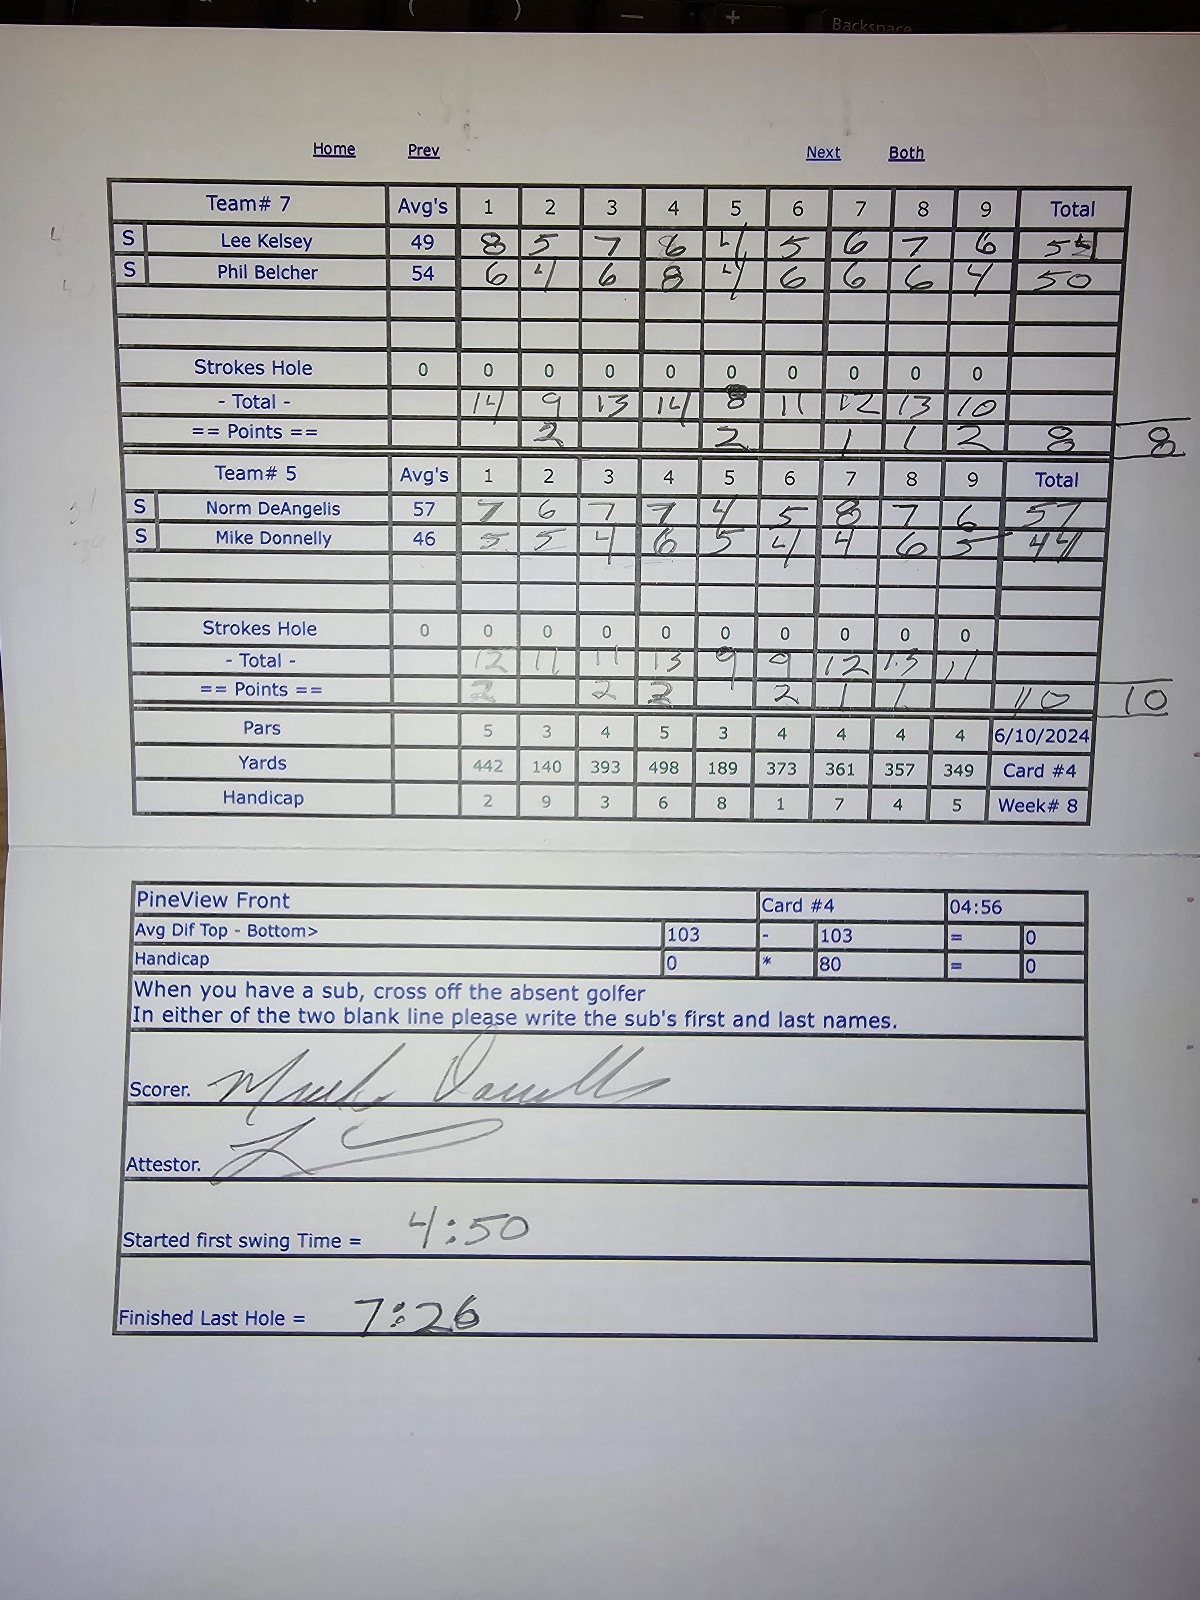 Backspace
Home Prev Next Both
Team# 7 Avg's 1 2 3 4 5 6 7 8 9 Total
S Lee Kelsey 49 8 5 7 6 4 5 6 7 6
S Phil Belcher 54 6 4 6 8 4 6 6 6 4 50
Strokes Hole 0 0 0 0 0 0 0 0 0 0
- Total - 14 9 13 14 8 11 12 13 10
== Points == 2 2 1 1 2 8 8
Team# 5 Avg's 1 2 3 4 5 6 7 8 9 Total
S Norm DeAngelis 57 7 6 7 7 4 5 8 7 6 57
S Mike Donnelly 46 5 5 4 6 5 4 4 6 5 44
Strokes Hole 0 0 0 0 0 0 0 0 0 0
- Total - 12 11 11 13 9 9 12 13 11
== Points == 2 2 2 2 1 1 10 10
Pars 5 3 4 5 3 4 4 4 4 6/10/2024
Yards 442 140 393 498 189 373 361 357 349 Card #4
Handicap 2 9 3 6 8 1 7 4 5 Week# 8
PineView Front Card #4 04:56
Avg Dif Top - Bottom> 103 - 103 = 0
Handicap 0 * 80 = 0
When you have a sub, cross off the absent golfer
In either of the two blank line please write the sub's first and last names.
Scorer.
Attestor.
Started first swing Time = 4:50
Finished Last Hole = 7:26